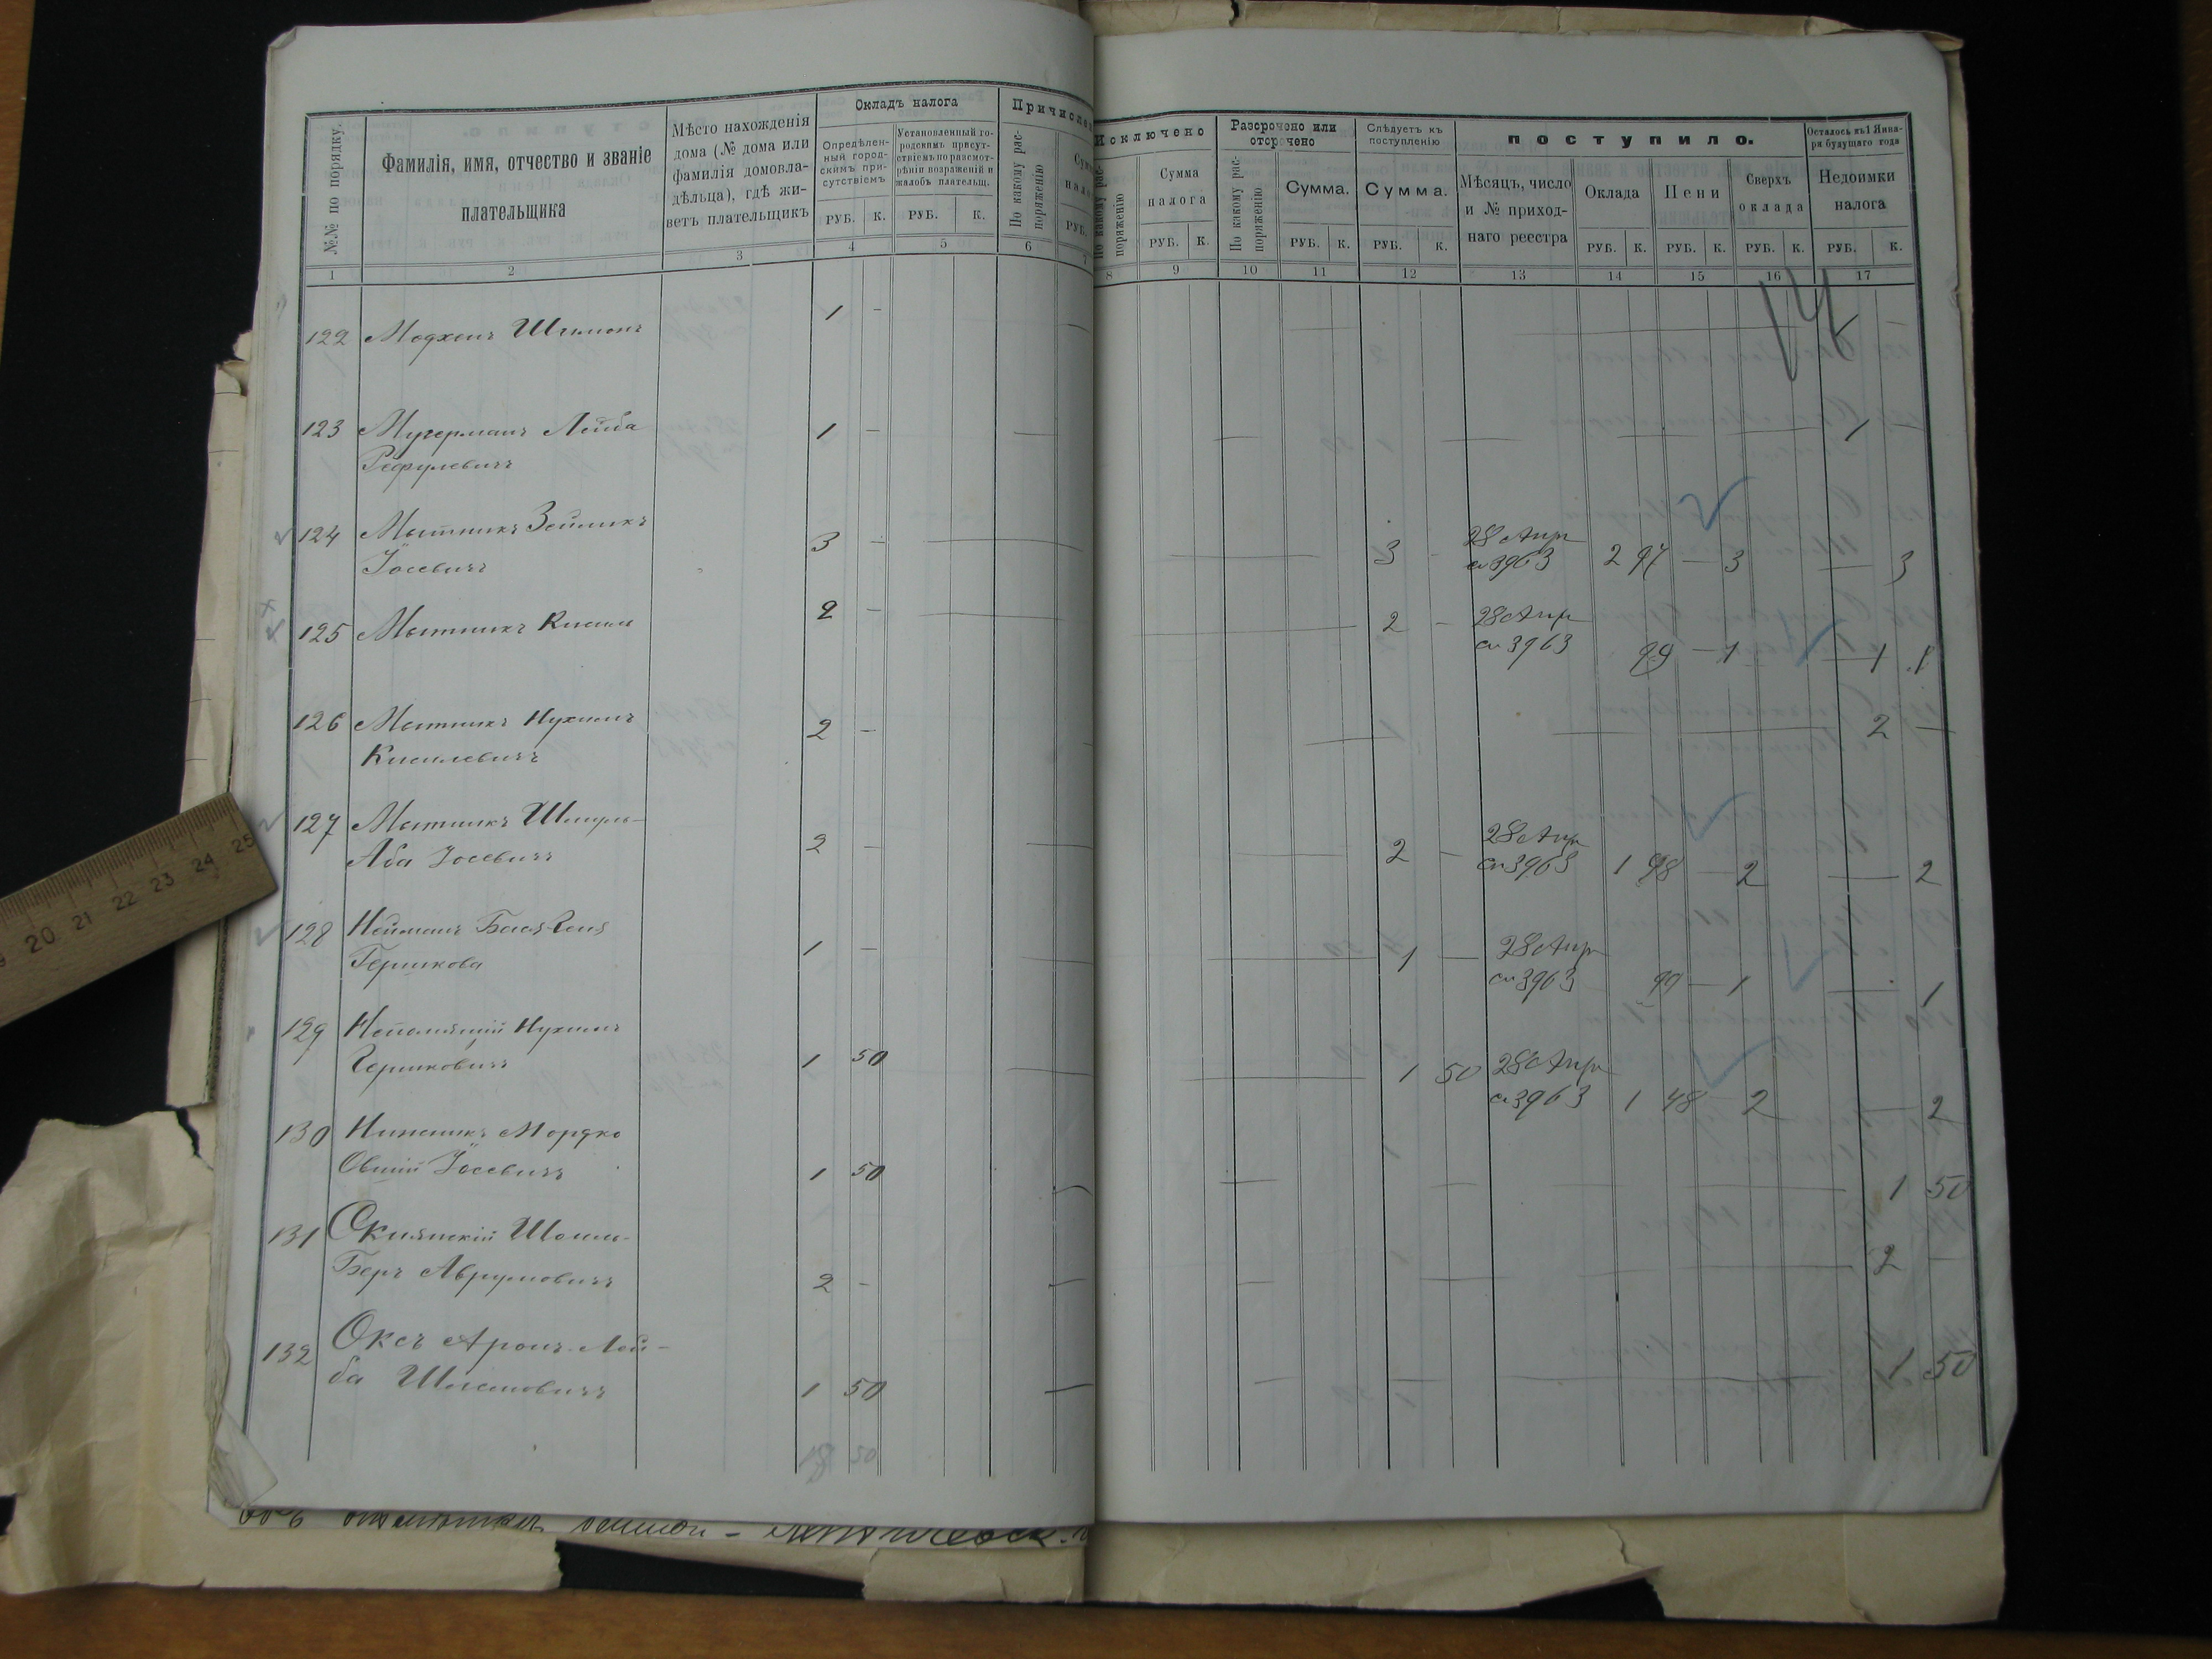 №№ по порядку.
Фамилія, имя, отчество и званіе
плательщика
Мѣсто нахожденія
дома (№ дома или
фамилія домовла-
дѣльца), гдѣ жи-
ветъ плательщикъ
Окладъ налога
Опредѣлен-
ный город-
скимъ при-
сутствіемъ
Установленный го-
родскимъ присут-
ствіемъ по разсмот-
рѣніи возраженій и
жалобъ плательщ.
РУБ. К. РУБ. К.
Причислен
По какому рас-
поряженію
РУБ.
Исключено
По какому рас-
поряженію
Сумма
налога
РУБ. К.
Разсрочено или
отсрочено
По какому рас-
поряженію
Сумма.
РУБ. К.
Слѣдуетъ къ
поступленію
Сумма.
РУБ. К.
поступило.
Мѣсяцъ, число
и № приход-
наго реестра
Оклада
РУБ. К.
Пени
РУБ. К.
Сверхъ
оклада
РУБ. К.
Осталось къ 1 Янва-
ря будущаго года
Недоимки
налога
РУБ. К.
1 2 3 4 5 6 7 8 9 10 11 12 13 14 15 16 17
14
122 1 – 1 –
123 Мугерманъ Лейба 1 – 1
Рефулевичъ
124 Мытникъ Зейликъ 3 – 3 – 28 Апр
Іосевичъ ст 3963 2 97 – 3 – 3
125 Мытникъ Кисиль 2 – 2 – 28 Апр
ст 3963 99 – 1 – 1 1
126 Мытникъ Нухимъ 2 – 2 –
Кисилевичъ
127 Мытникъ Шмуль- 2 – 2 – 28 Апр
Аба Іосевичъ ст 3963 1 98 – 2 – 2
128 Нейманъ 1 – 1 – 28 Апр
Гершкова ст 3963 99 – 1 – 1
129 Непомнящій Нухимъ
Гершковичъ 1 50 1 50 28 Апр
ст 3963 1 48 – 2 – 2
130 Мордко
Овшій Іосевичъ 1 50 1 50
131 Шоилъ-
Беръ Аврумовичъ 2 – 2 –
132 Оксъ Аронъ-Лей-
ба 1 50 1 50
18 50
20 21 22 23 24 25